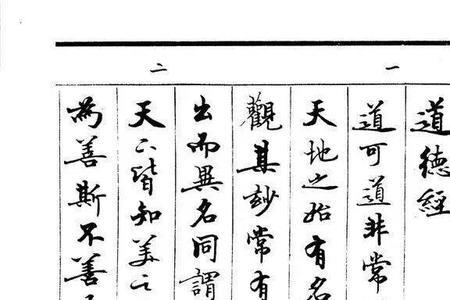 一
道德經
道可道非常
天地之始有名
觀其妙常有
出而異名同謂
二
天下皆知美之
為善斯不善